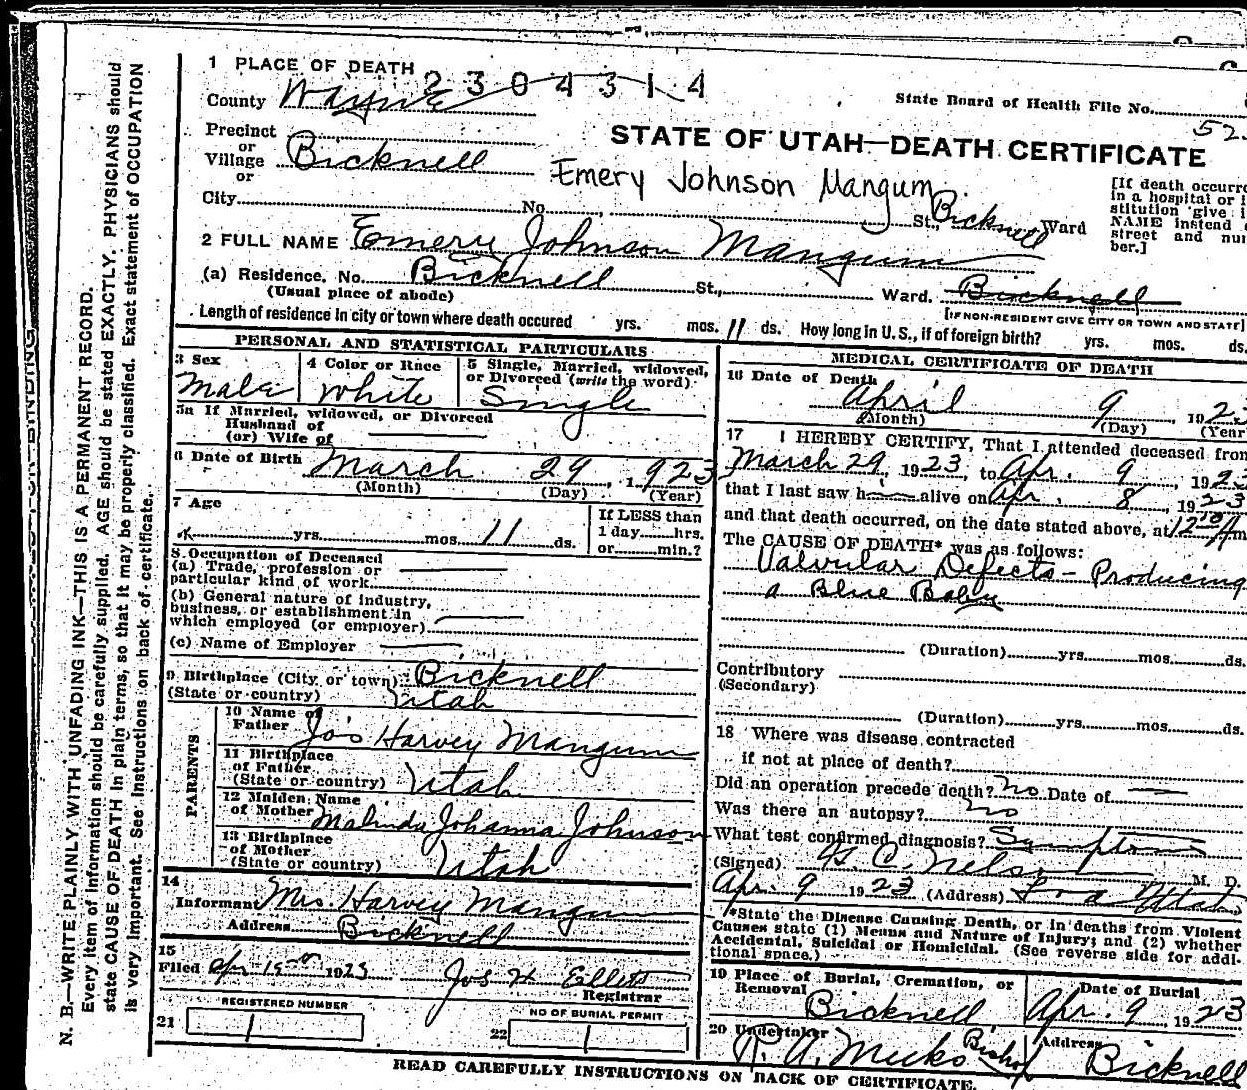 1 PLACE OF DEATH 2304314
County Wayne
State Board of Health File No.
52
Precinct
or
Village Bicknell
or
STATE OF UTAH—DEATH CERTIFICATE
Emery Johnson Mangum
City No. St., Bicknell Ward
[If death occurre
in a hospital or i
stitution give i
NAME instead o
street and nu
ber.]
2 FULL NAME Emery Johnson Mangum
(a) Residence. No. Bicknell St., Ward. Bicknell
(Usual place of abode)
[IF NON-RESIDENT GIVE CITY OR TOWN AND STATE]
Length of residence in city or town where death occured yrs. mos. 11 ds. How long in U. S., if of foreign birth? yrs. mos. ds.
PERSONAL AND STATISTICAL PARTICULARS
3 Sex
Male
4 Color or Race
White
5 Single, Married, widowed,
or Divorced (write the word)
Single
5a If Married, widowed, or Divorced
Husband of
(or) Wife of
6 Date of Birth March 29, 1923
(Month) (Day) (Year)
7 Age
yrs. mos. 11 ds.
If LESS than
1 day hrs.
or min.?
8. Occupation of Deceased
(a) Trade, profession or
particular kind of work
(b) General nature of industry,
business, or establishment in
which employed (or employer)
(c) Name of Employer
9 Birthplace (City or town) Bicknell
(State or country) Utah
PARENTS
10 Name of
Father Jos Harvey Mangum
11 Birthplace
of Father
(State or country) Utah
12 Maiden Name
of Mother Malinda Johanna Johnson
13 Birthplace
of Mother
(State or country) Utah
14
Informant Mrs. Harvey Mangum
Address Bicknell
15
Filed Apr 1923 Jos H Ellett
Registrar
REGISTERED NUMBER
21 1
NO OF BURIAL PERMIT
22 1
MEDICAL CERTIFICATE OF DEATH
16 Date of Death
April 9, 192
(Month) (Day) (Year
17 I HEREBY CERTIFY, That I attended deceased from
March 29, 1923, to Apr. 9, 1923
that I last saw h alive on Apr. 8, 1923
and that death occurred, on the date stated above, at 12 m
The CAUSE OF DEATH* was as follows:
Valvular Defects - Producing
a Blue Baby
(Duration) yrs. mos. ds.
Contributory
(Secondary)
(Duration) yrs. mos. ds.
18 Where was disease contracted
if not at place of death?
Did an operation precede death? No Date of
Was there an autopsy? no
What test confirmed diagnosis? Symptoms
(Signed) C. Nelson M. D.
Apr. 9 1923 (Address) Loa Utah
*State the Disease Causing Death, or in deaths from Violent
Causes state (1) Means and Nature of Injury; and (2) whether
Accidental, Suicidal or Homicidal. (See reverse side for addi-
tional space.)
19 Place of Burial, Cremation, or
Removal
Bicknell
Date of Burial
Apr. 9, 1923
20 Undertaker
R. A. Meeks Bishop
Address
Bicknell
READ CAREFULLY INSTRUCTIONS ON BACK OF CERTIFICATE.
N. B.—WRITE PLAINLY WITH UNFADING INK—THIS IS A PERMANENT RECORD.
Every item of information should be carefully supplied. AGE should be stated EXACTLY. PHYSICIANS should
state CAUSE OF DEATH in plain terms, so that it may be properly classified. Exact statement of OCCUPATION
is very important. See instructions on back of certificate.